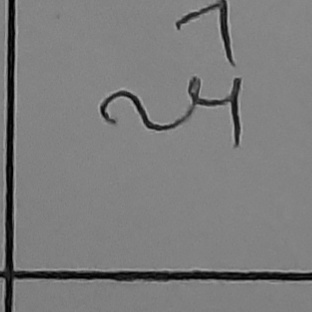 7
24